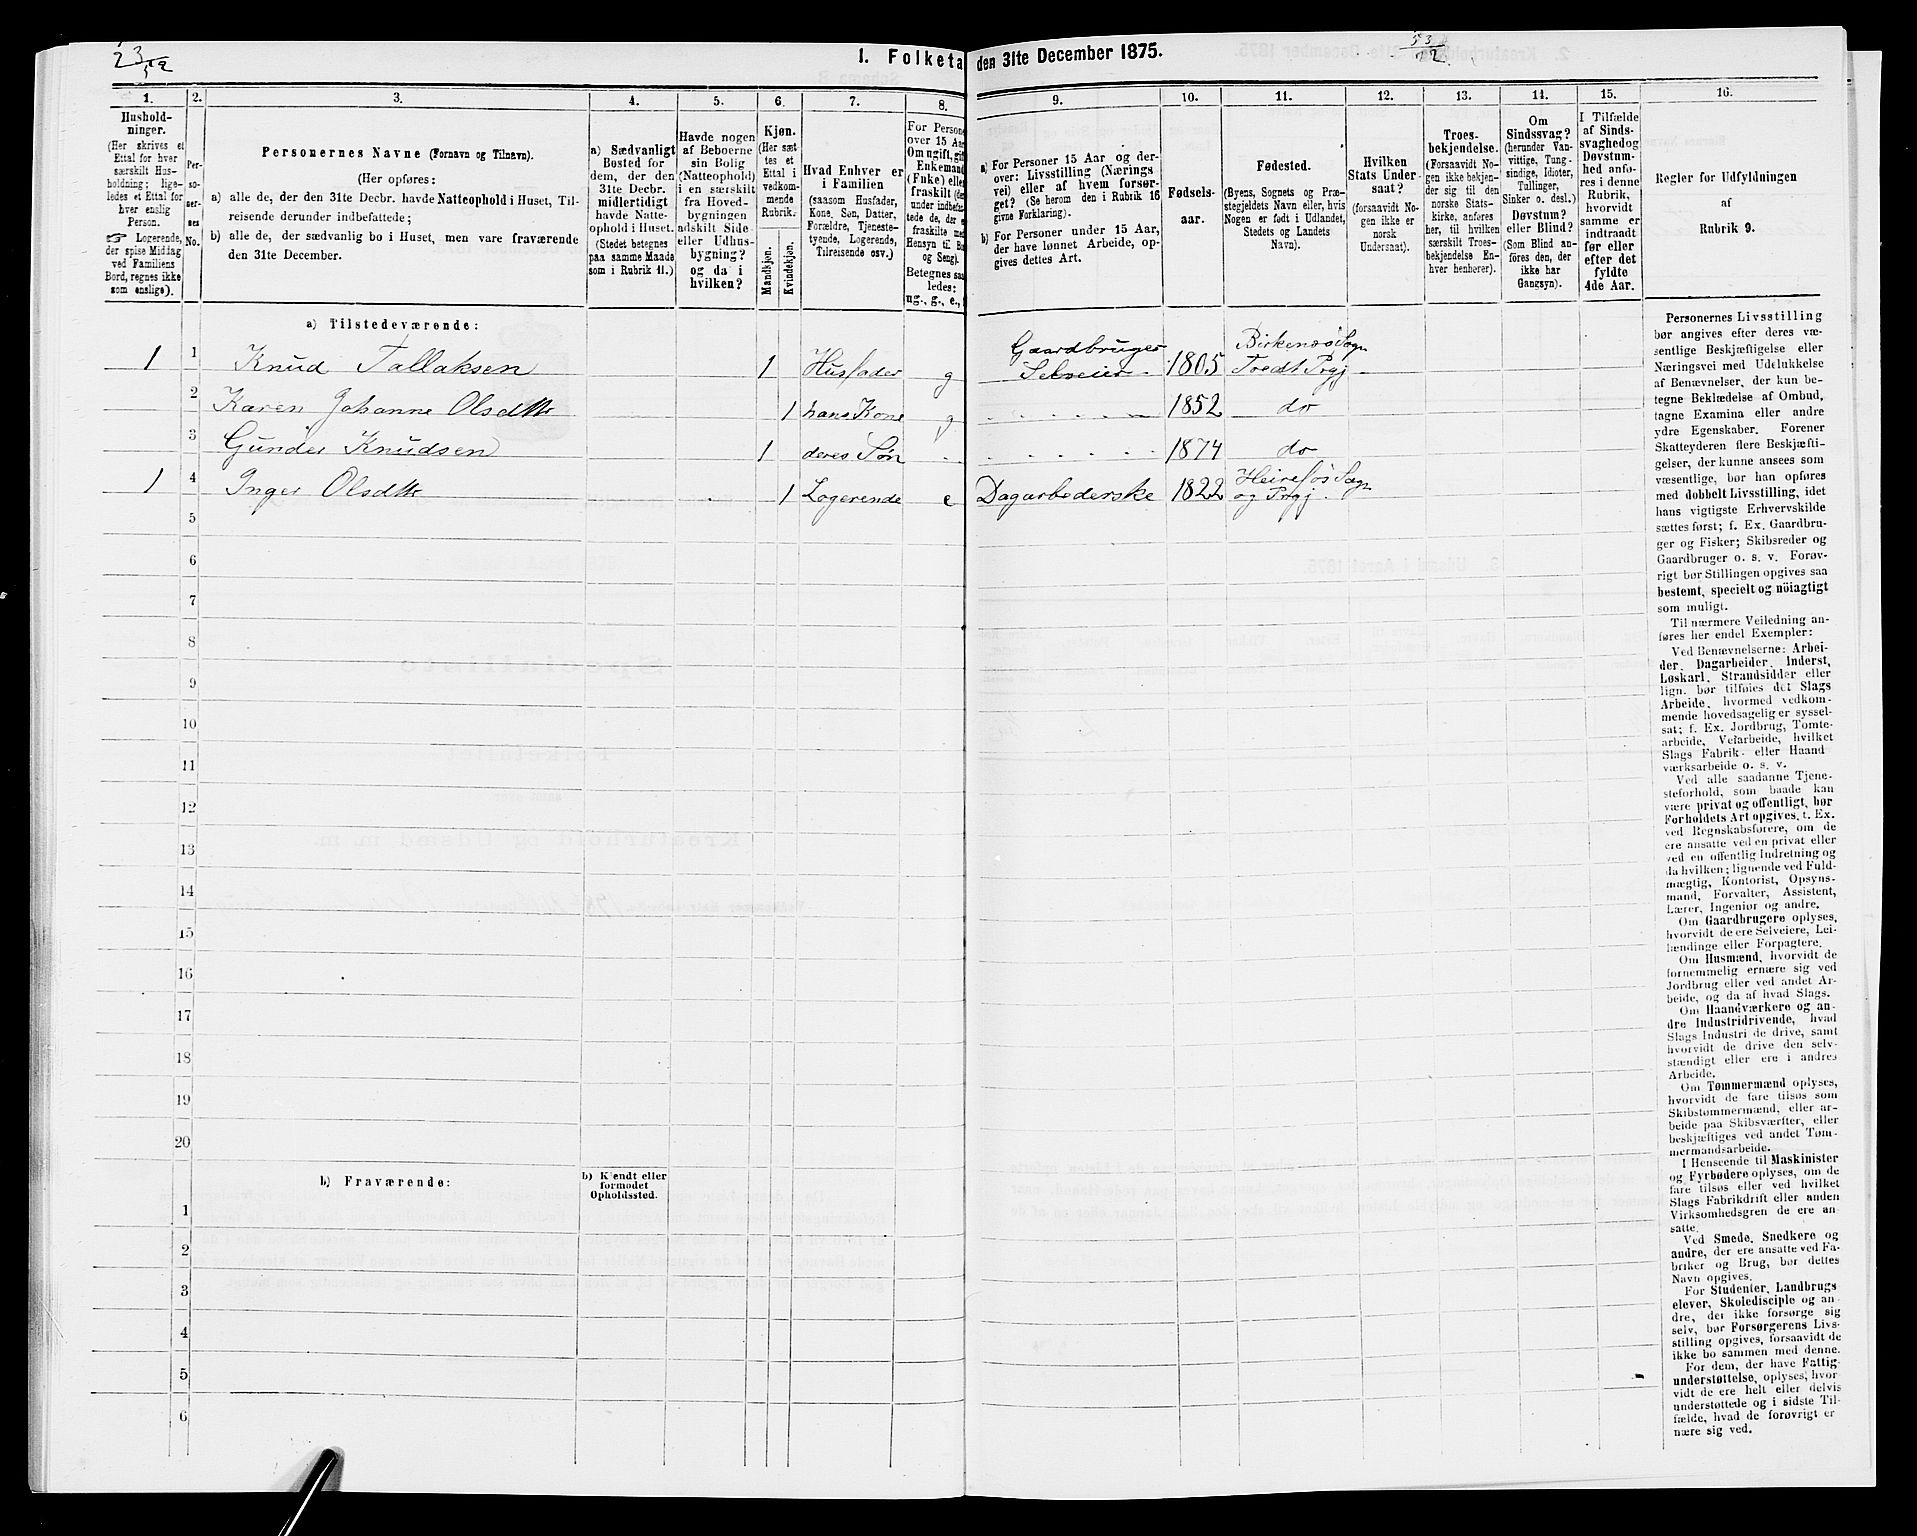 23/52
1. Folketæ
den 31te December 1875.
1.
2.
3.
4.
5.
6.
7.
8.
9.
10.
11.
12.
13.
14.
15.
16.
Hushold-
ninger.
(Her skrives et
Ettal for hver
særskilt Hus-
holdning; lige-
ledes et Ettal for
hver enslig
Person.
☞ Logerende,
der spise Middag
ved Familiens
Bord, regnes ikke
som enslige).
Per-
so-
ner-
nes
No.
Personernes Navne (Fornavn og Tilnavn).
(Her opføres:
a) alle de, der den 31te Decbr. havde Natteophold i Huset, Til-
reisende derunder indbefattede;
b) alle de, der sædvanlig bo i Huset, men vare fraværende
den 31te December.
a) Sædvanligt
Bosted for
dem, der den
31te Decbr.
midlertidigt
havde Natte-
ophold i Huset.
(Stedet betegnes
paa samme Maade
som i Rubrik 11.)
Havde nogen
af Beboerne
sin Bolig
(Natteophold)
i en særskilt
fra Hoved-
bygningen
adskilt Side-
eller Udhus-
bygning?
og da i
hvilken?
Kjøn.
(Her sæt-
tes et
Ettal i
vedkom-
mende
Rubrik.
Mandkjøn.
Kvindekjøn.
Hvad Enhver er
i Familien
(saasom Husfader,
Kone, Søn, Datter,
Forældre, Tjeneste-
tyende, Logerende,
Tilreisende osv.)
For Persone
over 15 Aar
Om ugift, gift
Enkemand
(Enke) eller
fraskilt (der
under indbefat-
tede de, der e
fraskilte med
Hensyn til Bo
og Seng).
Betegnes saa
ledes:
ug., g., e.,
a) For Personer 15 Aar og der-
over: Livsstilling (Nærings-
vei) eller af hvem forsør-
get? (Se herom den i Rubrik 16
givne Forklaring).
b) For Personer under 15 Aar,
der have lønnet Arbeide, op-
gives dettes Art.
Fødsels-
aar.
Fødested.
(Byens, Sognets og Præ-
stegjeldets Navn eller, hvis
Nogen er født i Udlandet,
Stedets og Landets
Navn).
Hvilken
Stats Under-
saat?
(forsaavidt No-
gen ikke er
norsk
Undersaat).
Troes-
bekjendelse.
(Forsaavidt No-
gen ikke bekjen-
der sig til den
norske Stats-
kirke, anføres
her, til hvilken
særskilt Troes-
bekjendelse En-
hver henhører).
Om
Sindssvag?
(herunder Van-
vittige, Tung-
sindige, Idioter,
Tullinger,
Sinker o. desl.)
Døvstum?
eller Blind?
(Som Blind an-
føres den, der
ikke har
Gangsyn).
I Tilfælde
af Sinds-
svaghed og
Døvstum-
hed anfø-
res i denne
Rubrik,
hvorvidt
samme er
indtraadt
før eller
efter det
fyldte
4de Aar.
Regler for Udfyldningen
af
Rubrik 9.
a) Tilstedeværende:
1 1 Knud Tallaksen 1 Husfader g Gaardbruger Selveier 1805 Birkenæs Sogn Tredt Prgj
2 Karen Johanne Olsdttr 1 hans Kone g 1852 do
3 Gunder Knudsen 1 deres Søn 1874 do
1 4 Inger Olsdttr 1 Logerende e Dagarbederske 1822 Heirefos Sogn og Prgj.
5
6
7
8
9
10
11
12
13
14
15
16
17
18
19
20
b) Fraværende:
b) Kjendt eller
formodet
Opholdssted.
1
2
3
4
5
6
Personernes Livsstilling
bør angives efter deres væ-
sentlige Beskjæftigelse eller
Næringsvei med Udelukkelse
af Benævnelser, der kun be-
tegne Beklædelse af Ombud,
tagne Examina eller andre
ydre Egenskaber. Forener
Skatteyderen flere Beskjæfti-
gelser, der kunne ansees som
væsentlige, bør han opføres
med dobbelt Livsstilling, idet
hans vigtigste Erhvervskilde
sættes først; f. Ex. Gaardbru-
ger og Fisker; Skibsreder og
Gaardbruger o. s. v. Forøv-
rigt bør Stillingen opgives saa
bestemt, specielt og nöiagtigt
som muligt.
Til nærmere Veiledning an-
føres her endel Exempler:
Ved Benævnelserne: Arbei-
der, Dagarbeider, Inderst,
Løskarl, Strandsidder eller
lign. bør tilføies det Slags
Arbeide, hvormed vedkom-
mende hovedsagelig er syssel-
sat; f. Ex. Jordbrug, Tomte-
arbeide, Veiarbeide, hvilket
Slags Fabrik- eller Haand
værksarbeide o. s. v.
Ved alle saadanne Tjene-
steforhold, som baade kan
være privat og offentligt, bør
Forholdets Art opgives, t. Ex.
ved Regnskabsførere, om de
ere ansatte ved en privat eller
ved en offentlig Indretning og
da hvilken; lignende ved Fuld-
mægtig, Kontorist, Opsyns-
mand, Forvalter, Assistent,
Lærer, Ingeniør og andre.
Om Gaardbrugere oplyses,
hvorvidt de ere Selveiere, Lei-
lændinge eller Forpagtere.
Om Husmænd, hvorvidt de
fornemmelig ernære sig ved
Jordbrug eller ved andet Ar-
beide, og da af hvad Slags.
Om Haandværkere og an-
dre Industridrivende, hvad
Slags Industri de drive, samt
hvorvidt de drive den selv-
stændigt eller ere i andres
Arbeide.
Om Tømmermænd oplyses,
hvorvidt de fare tilsøs som
Skibstømmermænd, eller ar-
beide paa Skibsværfter, eller
beskjæftiges ved andet Tøm-
mermandsarbeide.
I Henseende til Maskinister
og Fyrbødere oplyses, om de
fare tilsøs eller ved hvilket
Slags Fabrikdrift eller anden
Virksomhedsgren de ere an-
satte.
Ved Smede, Snedkere og
andre, der ere ansatte ved Fa-
briker og Brug, bør dettes
Navn opgives.
For Studenter, Landbrugs
elever, Skoledisciple og an-
dre, der ikke forsørge sig
selv, bør Forsørgerens Livs-
stilling opgives, forsaavidt de
ikke bo sammen med denne.
For dem, der have Fattig-
understøttelse, oplyses, hvor-
vidt de ere helt eller delvis
understøttede og i sidste Til-
fælde, hvad de forøvrigt er
nære sig ved.